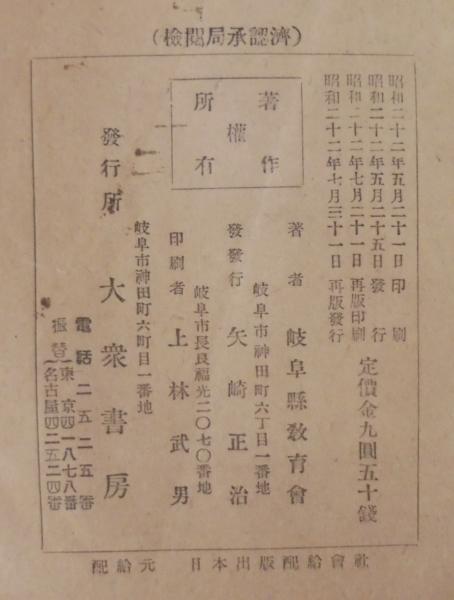 (檢閲局承認濟)
昭和二十二年五月二十一日印刷
昭和二十二年五月二十五日發行
昭和二十二年七月二十一日再版印刷
昭和二十二年七月三十一日再版發行
定價金九圓五十錢
著作權所有
著者 岐阜縣敎育會
岐阜市神田町六丁目一番地
發發行 矢崎正治
岐阜市長良福光二〇七〇番地
印刷者 上林武男
岐阜市神田町六町目一番地
發行所 大衆書房
電話二五二五番
振替(東京四一八七八番
(名古屋四二五二四番
配給元 日本出版配給會社